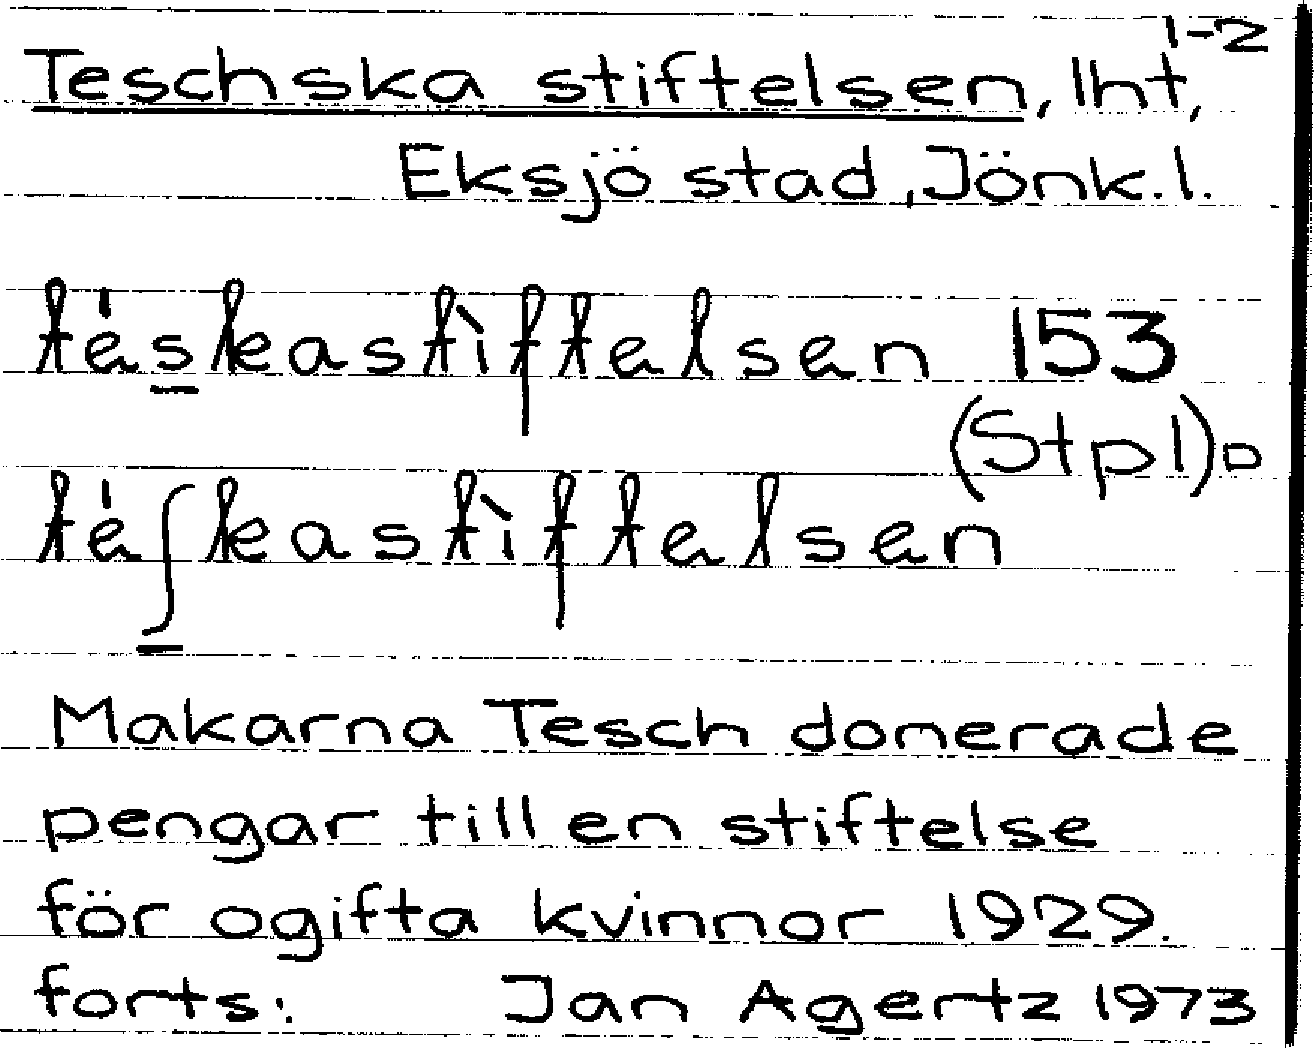 1-2
Teschska stiftelsen, lht,
Eksjö stad, Jönk.l.
té̀skastìftelsen 153
(Stpl)o
téʃkastìftelsen
Makarna Tesch donerade
pengar till en stiftelse
för ogifta kvinnor 1929.
forts: Jan Agertz 1973